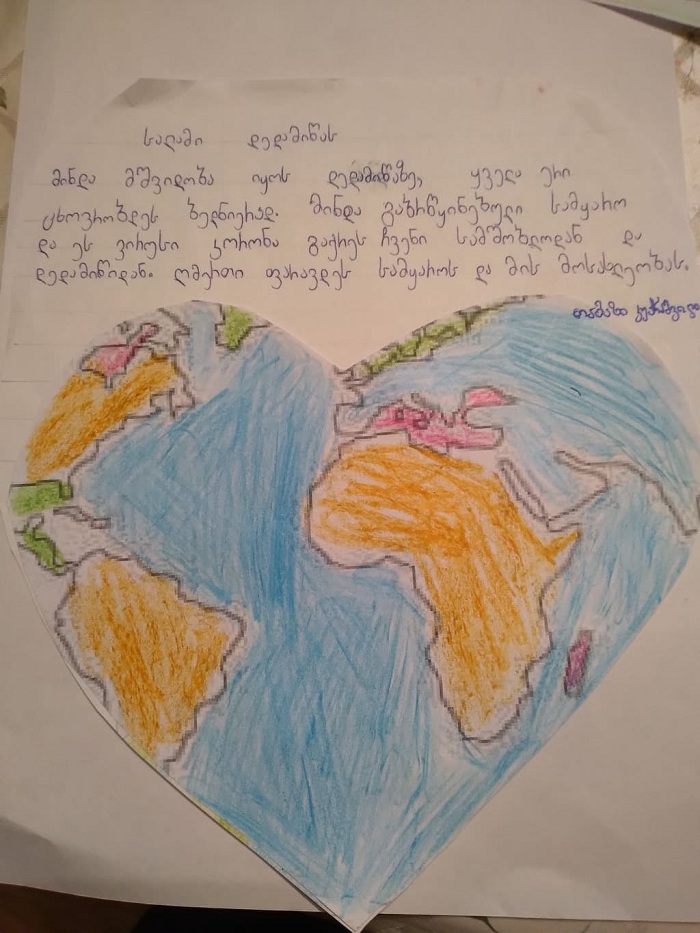 სალამი დედამიწას
მინდა მშვიდობა იყოს დედამიწაზე, ყველა ერი
ცხოვრობდეს ბედნიერად. მინდა გაბრწყინებული სამყარო
და ეს ვირუსი კორონა გაქრეს ჩვენი სამშობლოდან და
დედამიწიდან. ღმერთი ფარავდეს სამყაროს და მის მოსახლეობას.
თამაზი